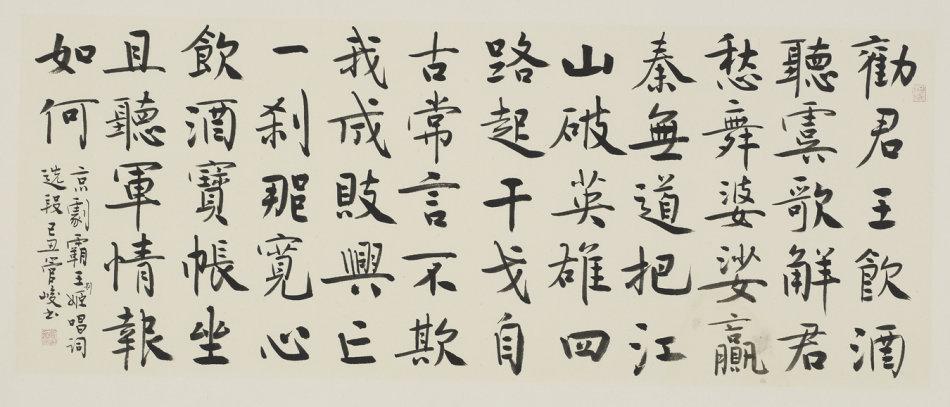 勸君王飲酒
聽虞歌解君
愁舞婆娑贏
秦無道把江
山破英雄四
路起干戈自
古常言不欺
我成敗興亡
一刹那寬心
飲酒寶帳坐
且聽軍情報
如何
京劇霸王别姬唱詞
选段己丑管峻书